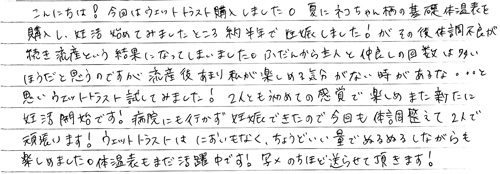 こんにちは!今回はウェットトラスト購入しました。夏にネコちゃん柄の基礎体温表を
購入し、妊活始めてみましたところ約半年で妊娠しました!がその後体調不良が
続き流産という結果になってしまいました。ふだんから主人と仲良しの回数は多い
ほうだと思うのですが流産後あまり私が楽しめる気分がない時があるな...と
思いウェットトラスト試してみました!2人とも初めての感覚で楽しめまた新たに
妊活開始です!病院にも行かず妊娠できたので今回も体調整えて2人で
頑張ります!ウェットトラストはにおいもなく、ちょうどいい量でぬるぬるしながらも
楽しめました。体温表もまだ活躍中です!写メのちほど送らせて頂きます!